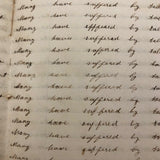 Many have suffered by
Many have suffered by
Many have suffered by
Many have suffered by
Many have suffered by
Many have suffered by
Many have suffered by
Many have suffered by
Many have suffered by
Many have suffered by
Many have suffered by
Many have suffered by
Many have suffered by